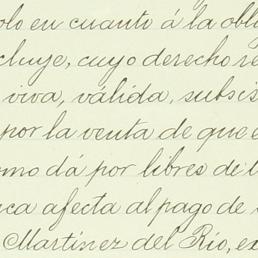 olo en cuanto á la obl
cluye, cuyo derecho re
viva, válida, subsis
por la venta de que e
omo dá por libres de l
ca afecta al pago de
Martínez del Río, ex